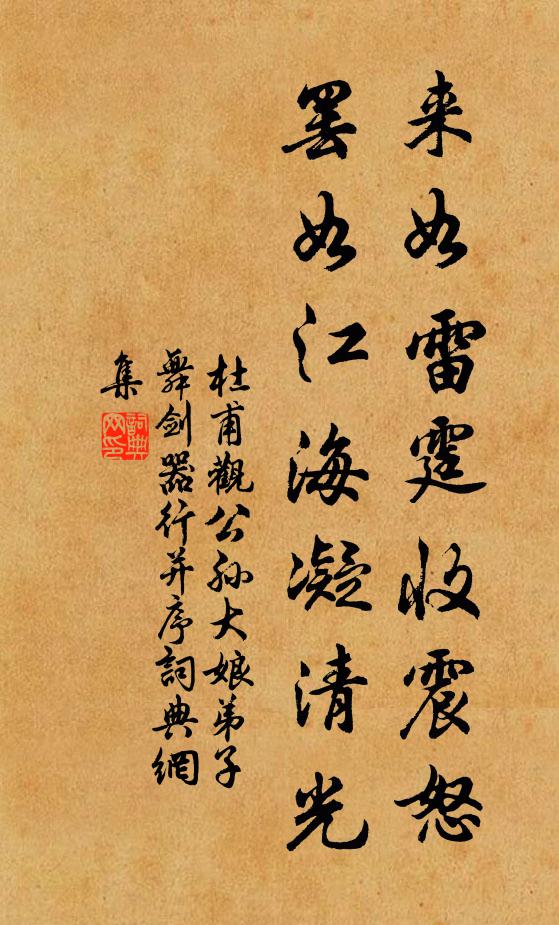 来如雷霆收震怒
罢如江海凝清光
杜甫觀公孫大娘弟子
舞剑器行并序詞典網
集
詞典网印